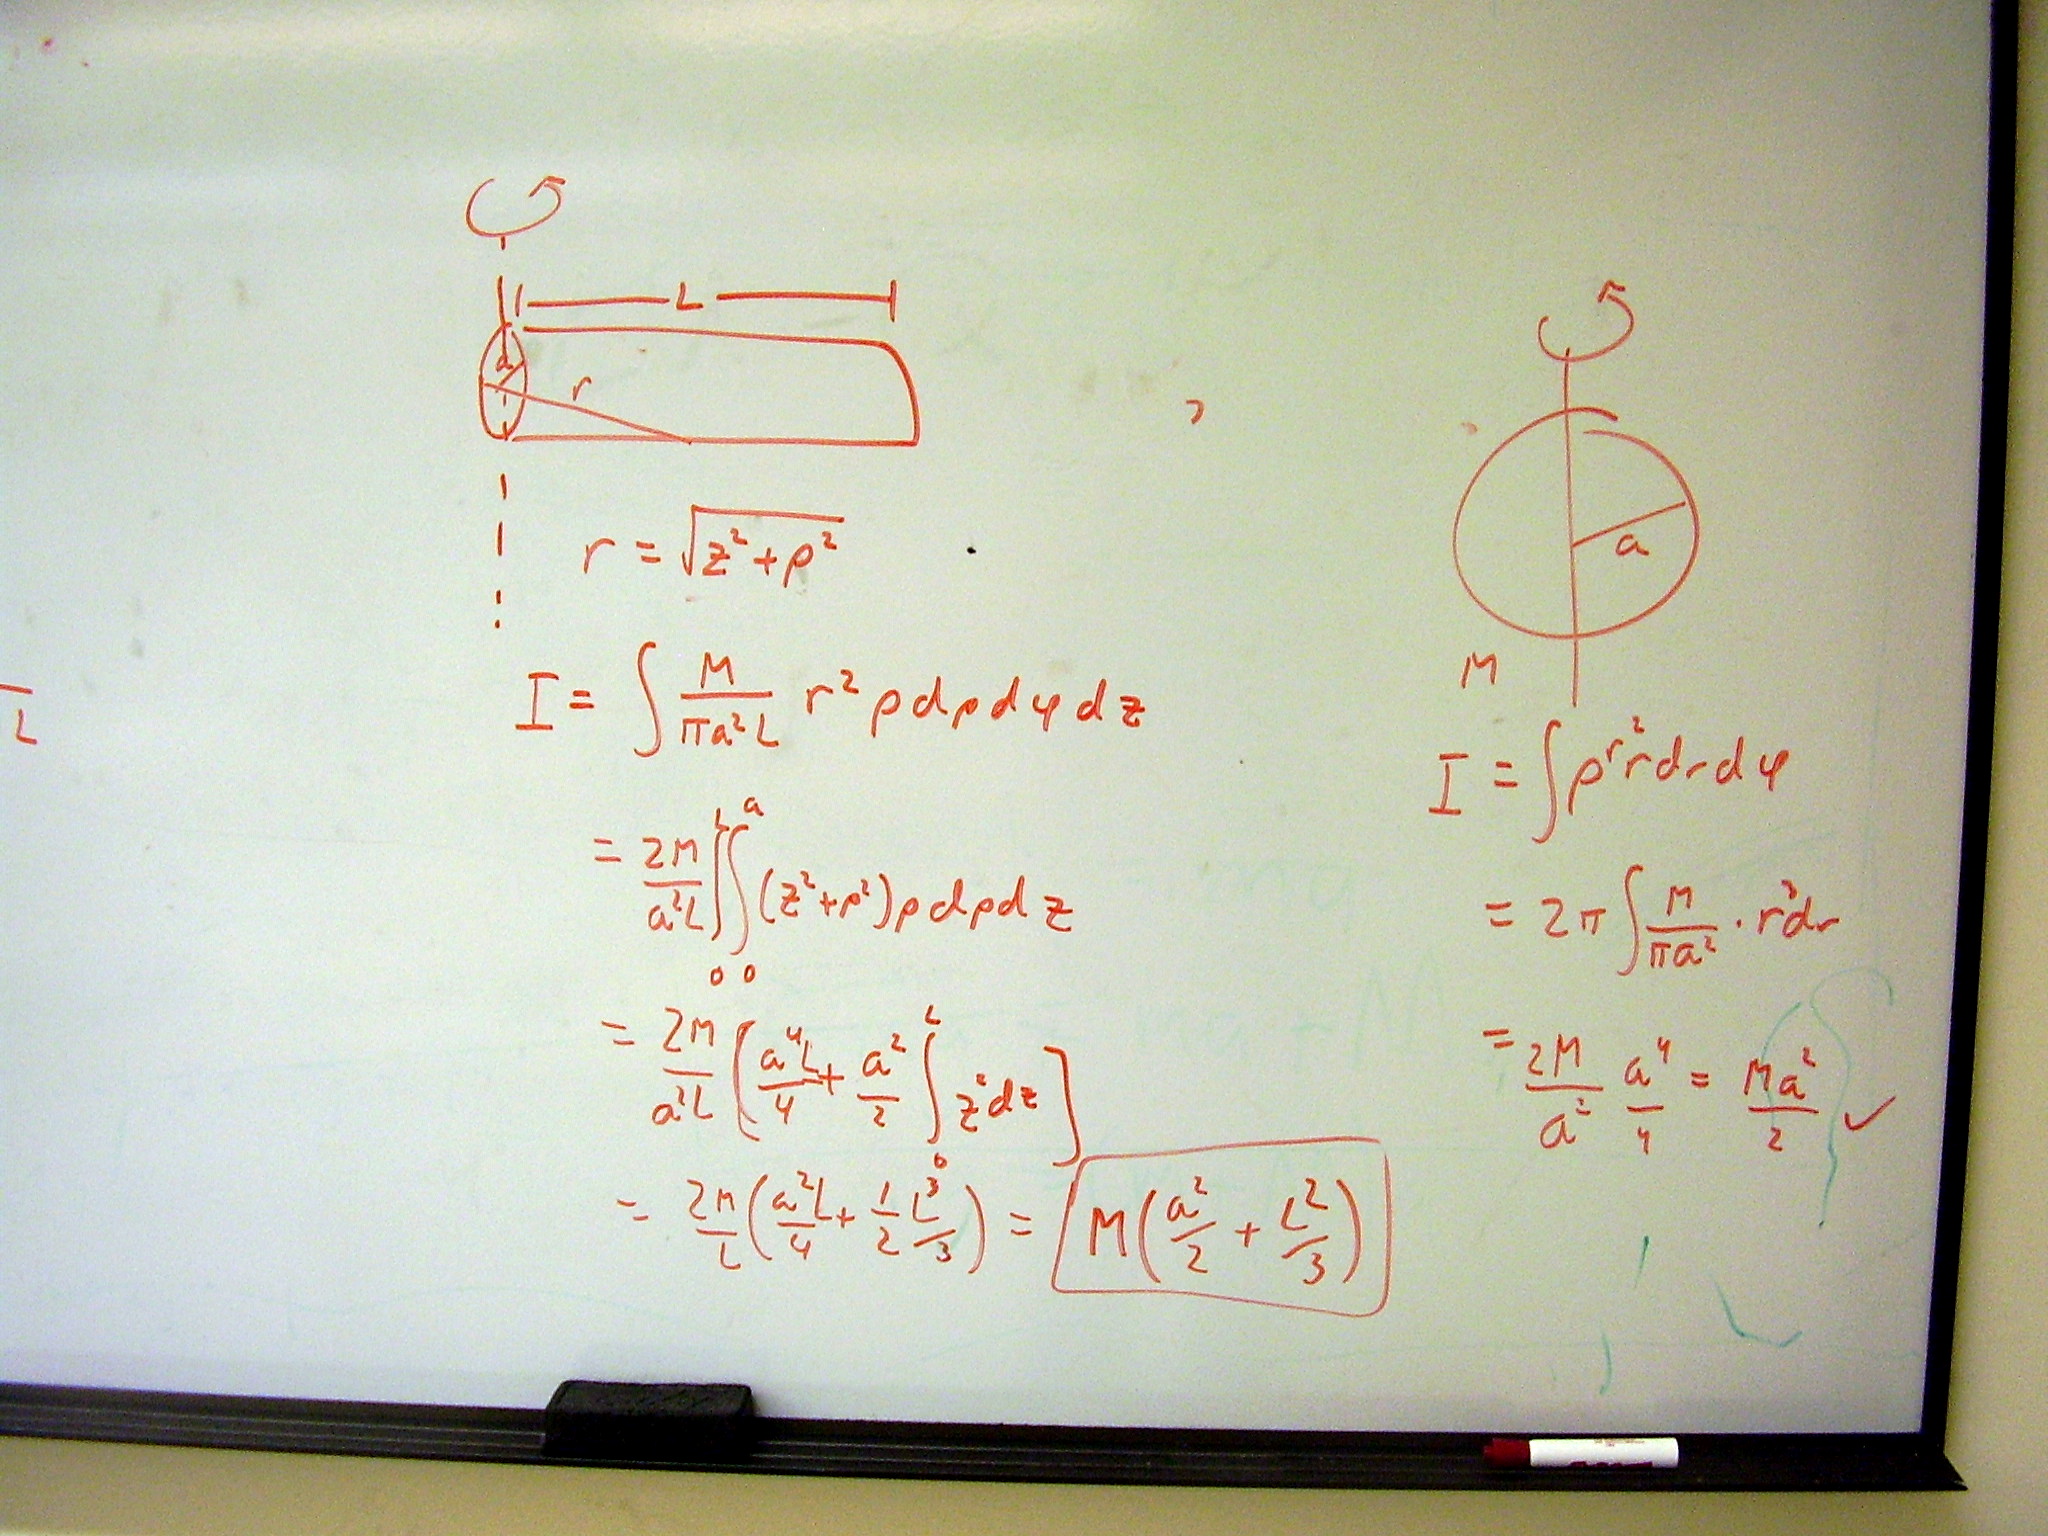 L
a
r
r = √(z² + ρ²)
I = ∫ M/(πa²L) r² ρ dρ dφ dz
= 2M/(a²L) ∫₀ᴸ ∫₀ᵃ (z² + ρ²) ρ dρ dz
= 2M/(a²L) [a⁴L/4 + a²/2 ∫₀ᴸ z² dz]
= 2M/L (a²L/4 + 1/2 L³/3) = M(a²/2 + L²/3)
L
a
M
I = ∫ ρ r² r dr dφ
= 2π ∫ M/(πa²) · r³ dr
= 2M/a² a⁴/4 = Ma²/2 ✓